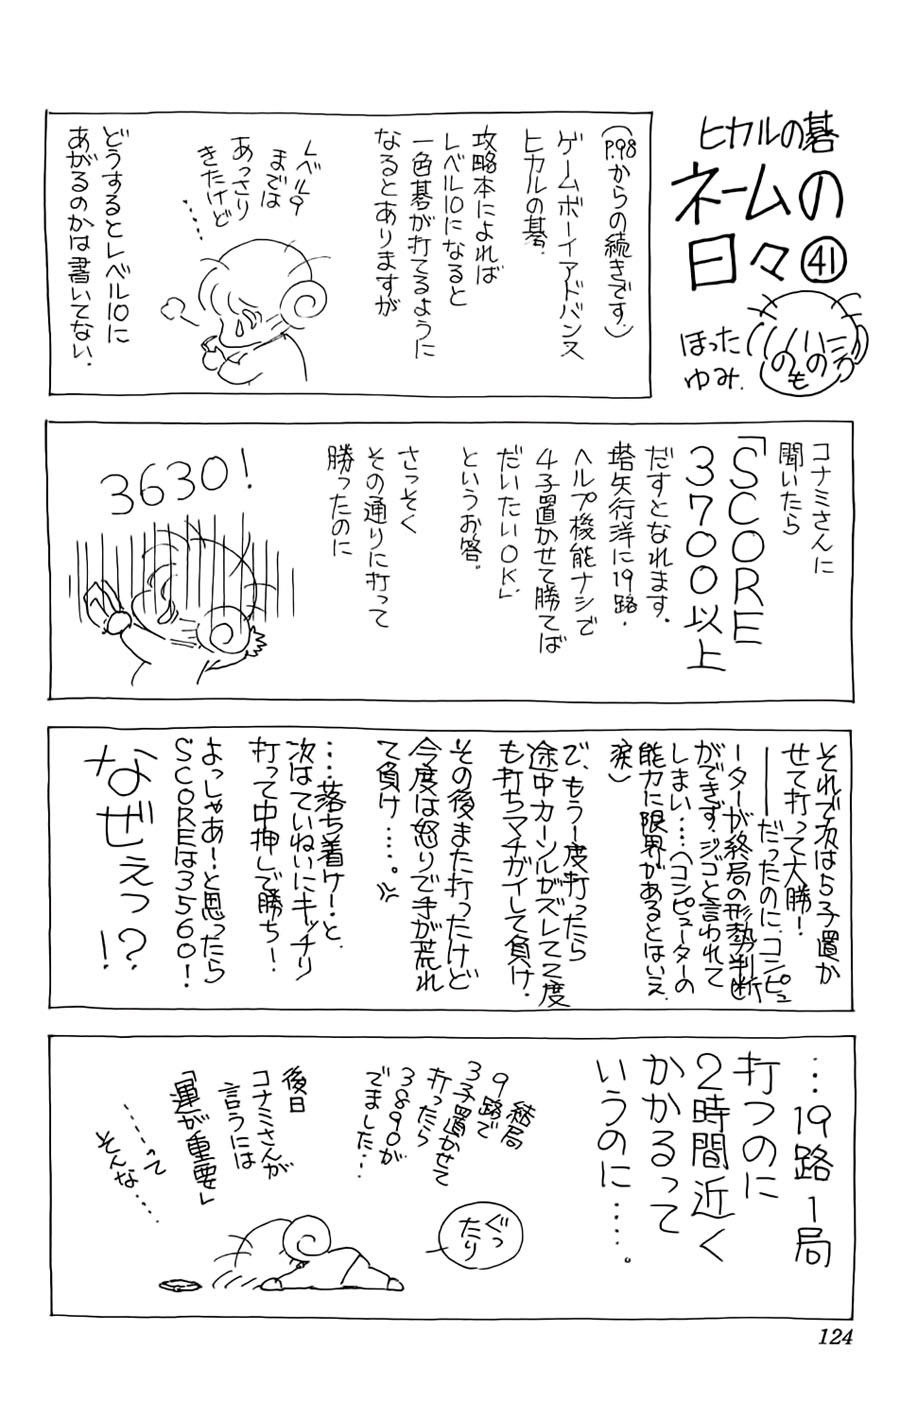 ヒカルの碁
ネームの
日々㊶
ほった
ゆみ.
のへのへもの
(P.98からの続きです.)
ゲームボーイアドバンス
ヒカルの碁.
攻略本によれば
レベル10になると
一色碁が打てるように
なるとありますが
レベル9
までは
あっさり
きたけど
……
どうするとレベル10に
あがるのかは書いてない.
コナミさんに
聞いたら
「SCORE
3700以上
だすとなれます.
塔矢行洋に19路.
ヘルプ機能ナシで
4子置かせて勝てば
だいたいOK」
というお答.
さっそく
その通りに打って
勝ったのに
3630!
それで次は5子置か
せて打って大勝!
――だったのに、コンピュ
ーターが終局の形勢判断
ができず.ジゴと言われて
しまい…(コンピューターの
能力に限界があるとはいえ.
涙)
で、もう1度打ったら
途中カーソルがズレて2度
も打ちマチガイして負け.
その後また打ったけど
今度は怒りで手が荒れ
て負け……。
……落ち着け!と、
次はていねいにキッチリ
打って中押しで勝ち!
よっしゃあ!と思ったら
SCOREは3560!
なぜぇっ?!
…19路1局
打つのに
2時間近く
かかるって
いうのに……。
結局
9路で
3子置かせて
打ったら
3890が
でました…
ぐっ
たり
後日
コナミさんが
言うには
「運が重要」
……って
そんな……
124